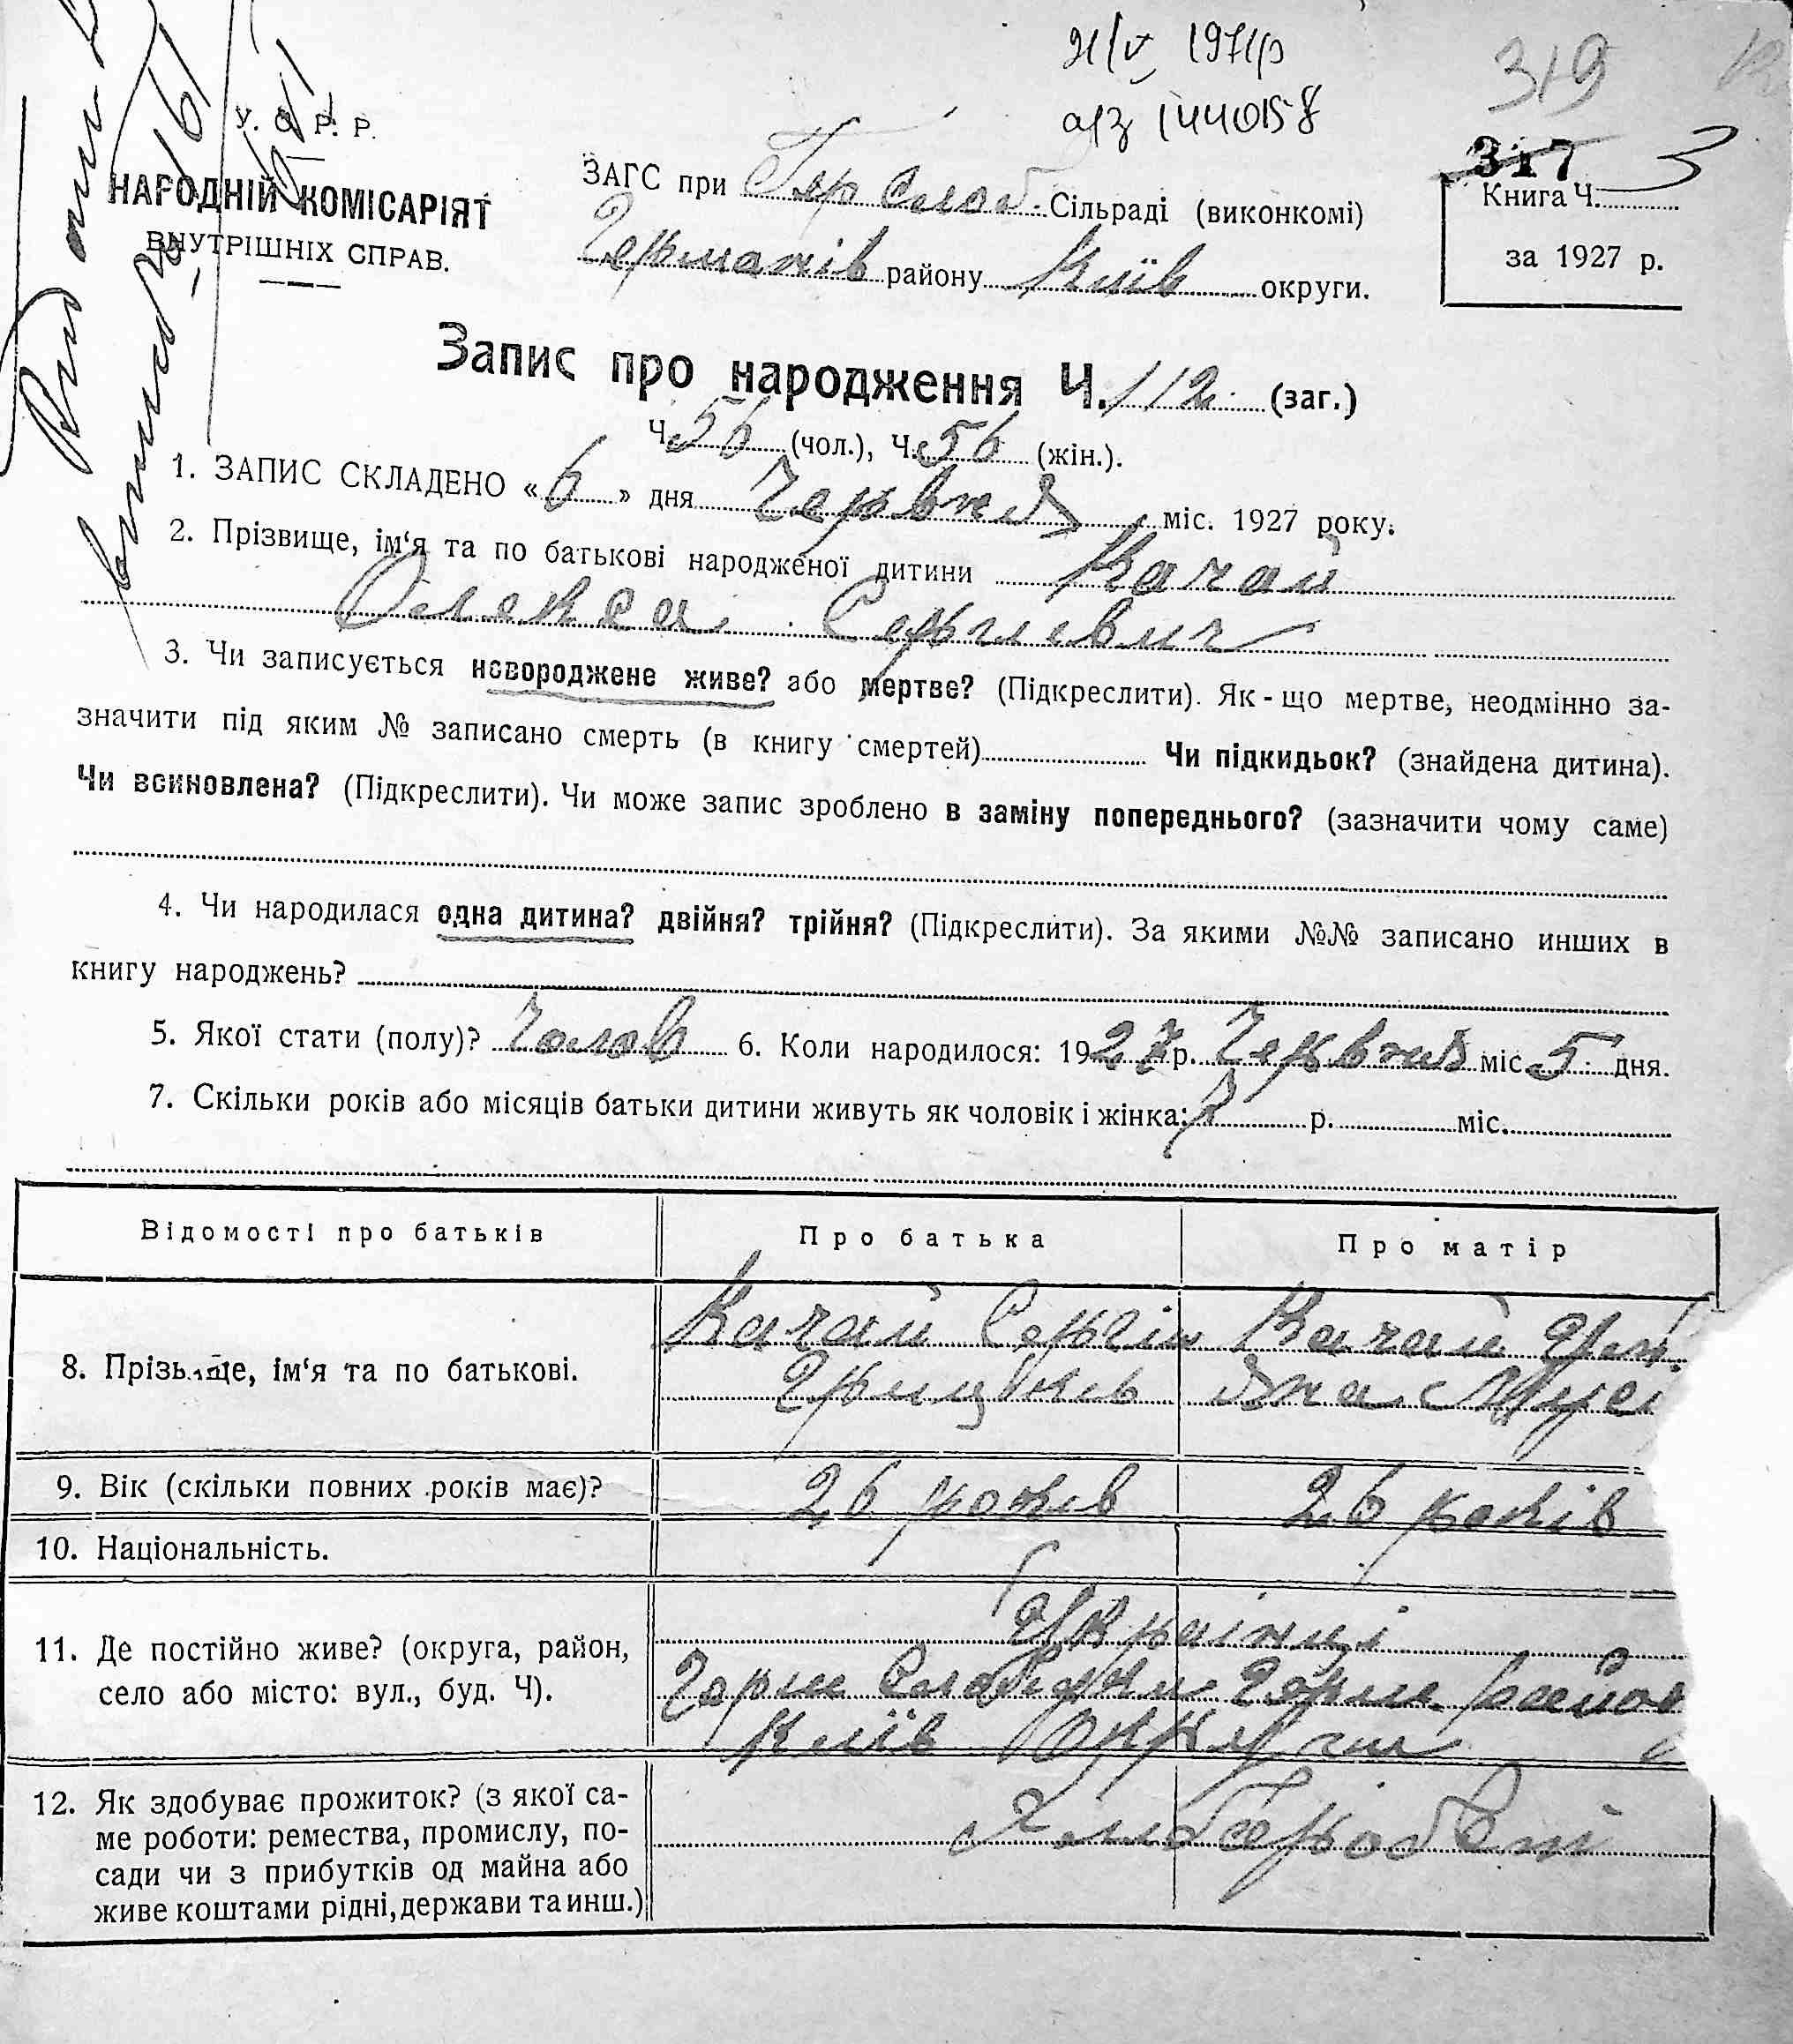 21/V 1971р
319
144058
У. С. Р. Р.
НАРОДНІЙ КОМІСАРІЯТ
ВНУТРІШНІХ СПРАВ.
ЗАГС при Гер Слоб. Сільраді (виконкомі)
Германів району Київ округи.
317 3
Книга Ч.
за 1927 р.
Запис про народження Ч. 112 (заг.)
Ч. 56 (чол.), Ч. 56 (жін.).
1. ЗАПИС СКЛАДЕНО «6» дня Червня міс. 1927 року.
2. Прізвище, ім‘я та по батькові народженої дитини Качай
Олекса Сергієвич
3. Чи записується новороджене живе? або мертве? (Підкреслити). Як-що мертве, неодмінно за-
значити під яким № записано смерть (в книгу смертей) Чи підкидьок? (знайдена дитина).
Чи всиновлена? (Підкреслити). Чи може запис зроблено в заміну попереднього? (зазначити чому саме)
4. Чи народилася одна дитина? двійня? трійня? (Підкреслити). За якими №№ записано инших в
книгу народжень?
5. Якої стати (полу)? Чолов 6. Коли народилося: 1927 р. Червня міс. 5 дня.
7. Скільки років або місяців батьки дитини живуть як чоловік і жінка: 7 р. міс.
Відомості про батьків Про батька Про матір
8. Прізвище, ім‘я та по батькові. Качай Сергій Качай
Грицьків
9. Вік (скільки повних років має)? 26 років 26 років
10. Національність.
Українці
11. Де постійно живе? (округа, район,
село або місто: вул., буд. Ч).
Герм Слабідки Герм. район
Київ Округи
12. Як здобуває прожиток? (з якої са-
ме роботи: ремества, промислу, по-
сади чи з прибутків од майна або
живе коштами рідні, держави та инш.)
Хліборобсті